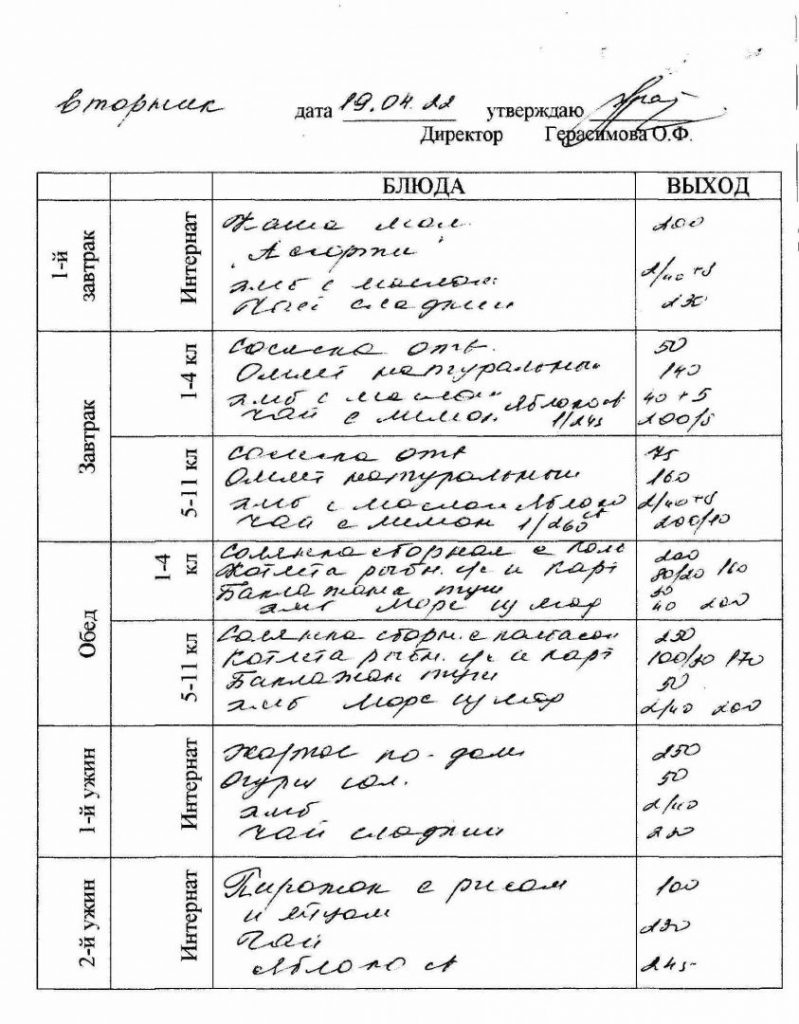 вторник дата 19.04.22 утверждаю
Директор Герасимова О.Ф.
БЛЮДА ВЫХОД
1-й завтрак Интернат
Каша мол. 200
"Ассорти"
хлеб с маслом 2/40+5
Чай сладкий
Завтрак
1-4 кл
Сосиска отв. 50
Омлет натуральный 140
хлеб с маслом Яблоко 40+5
чай с лимон 1/245 200/5
5-11 кл
Сосиска отв 75
Омлет натуральный 160
хлеб с маслом Яблоко 2/40+5
чай с лимон 1/260 200/10
Обед
1-4 кл
Солянка сборная с колб 200
Котлета рыбн. и карт 80/20 160
Баклажан туш 50
хлеб морс 40 200
5-11 кл
Солянка сборн. с колбасой
Котлета рыбн. и карт 100/30 170
Баклажан туш 50
хлеб морс 2/40 200
1-й ужин Интернат
Жаркое по-дом 250
Огурец сол. 50
хлеб 2/40
чай сладкий
2-й ужин Интернат
Пирожок с рисом 100
и яйцом
Чай
Яблоко 245